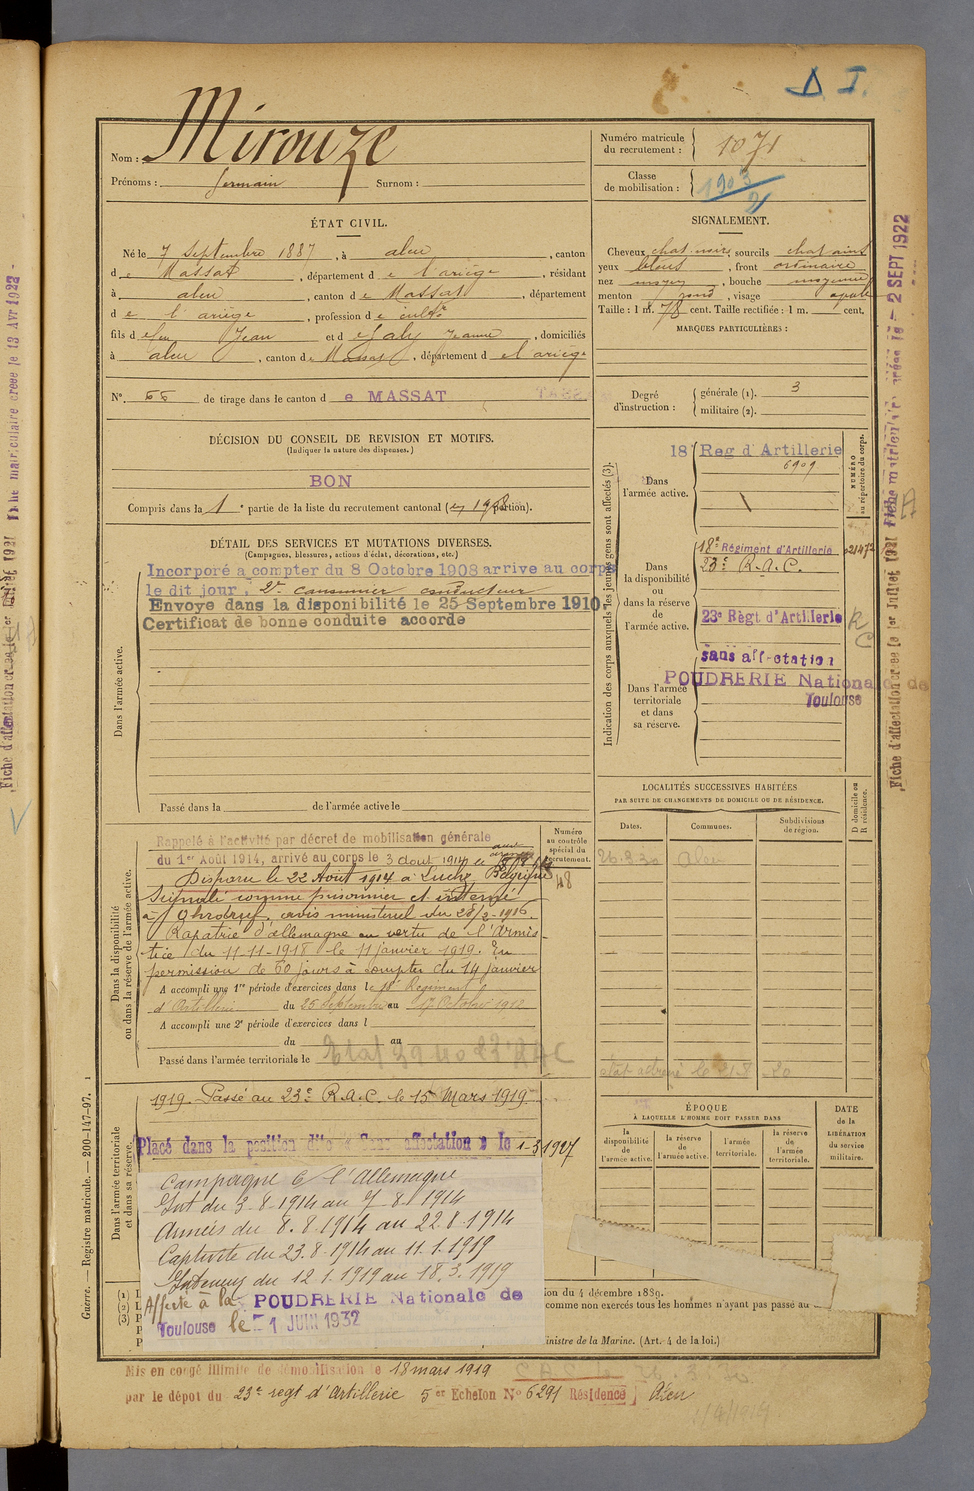 D. I.
Nom : Mirouze
Prénoms : Germain Surnom :
Numéro matricule du recrutement : 1071
Classe de mobilisation : 1903
ÉTAT CIVIL.
Né le 7 Septembre 1887, à aleu, canton
de Massat, département de l'ariège, résidant
à aleu, canton de Massat, département
de l'ariège, profession de cultr
fils de feu Jean et de Galy Jeanne, domiciliés
à aleu, canton de Massat, département de l'ariège
SIGNALEMENT.
Cheveux chat. noirs, sourcils chatains
yeux bleus, front ordinaire
nez moyen, bouche moyenne
menton rond, visage ovale
Taille : 1 m. 78 cent. Taille rectifiée : 1 m. cent.
MARQUES PARTICULIÈRES :
N°. 66 de tirage dans le canton de MASSAT
Degré d'instruction :
générale (1). 3
militaire (2).
DÉCISION DU CONSEIL DE REVISION ET MOTIFS.
(Indiquer la nature des dispenses.)
BON
Compris dans la 1e partie de la liste du recrutement cantonal ( portion).
DÉTAIL DES SERVICES ET MUTATIONS DIVERSES.
(Campagnes, blessures, actions d'éclat, décorations, etc.)
Dans l'armée active.
Incorporé a compter du 8 Octobre 1908 arrive au corps
le dit jour, 2e canonnier conducteur
Envoye dans la disponibilité le 25 Septembre 1910.
Certificat de bonne conduite accorde
Passé dans la de l'armée active le
Indication des corps auxquels les jeunes gens sont affectés (3).
NUMÉRO au répertoire du corps.
Dans l'armée active.
18e Reg d'Artillerie
6909
Dans la disponibilité ou dans la réserve de l'armée active.
18e Régiment d'Artillerie
23e R.A.C.
23e Règt d'Artillerie
Dans l'armée territoriale et dans sa réserve.
sans affectation
POUDRERIE Nationale de
Toulouse
LOCALITÉS SUCCESSIVES HABITÉES
PAR SUITE DE CHANGEMENTS DE DOMICILE OU DE RÉSIDENCE.
Dates. Communes. Subdivisions de région. D domicile ou R résidence.
Aleu
Dans la disponibilité ou dans la réserve de l'armée active.
Numéro au contrôle spécial du recrutement.
Rappelé à l'activité par décret de mobilisation générale
du 1er Août 1914, arrivé au corps le 3 aout 1914
Disparu le 22 Août 1914 à Luchy Belgique
Signalé comme prisonnier et interné
à Ohrdruf, avis ministériel du 28/2-1916.
Rapatrié d'allemagne en vertu de l'Armis-
tice du 11-11-1918 le 11 janvier 1919. En
permission de 60 jours à compter du 14 janvier
A accompli une 1re période d'exercices dans le 18e Régiment
d'Artillerie du 25 Septembre au 17 Octobre 1912
A accompli une 2e période d'exercices dans l
du au
Passé dans l'armée territoriale le
Dans l'armée territoriale et dans sa réserve.
1919. Passé au 23e R.a.C. le 15 Mars 1919
Placé dans la position dite « Sans affectation » le 1-3-1927
Campagne c/ l'Allemagne
Int du 3-8-1914 au 7-8-1914
Armées du 8.8.1914 au 22.8.1914
Captivité du 23.8.1914 au 11.1.1919
Intérieur du 12.1.1919 au 18.3.1919
Affecté à la POUDRERIE Nationale de
Toulouse le 1 JUIN 1932
ÉPOQUE
À LAQUELLE L'HOMME DOIT PASSER DANS
la disponibilité de l'armée active.
la réserve de l'armée active.
l'armée territoriale.
la réserve de l'armée territoriale.
DATE de la LIBÉRATION du service militaire.
(1)
(2)
(3)
ion du 4 décembre 1889.
comme non exercés tous les hommes n'ayant pas passé au
inistre de la Marine. (Art. 4 de la loi.)
Mis en congé illimité de démobilisation le 18 mars 1919
par le dépot du 23e regt d'Artillerie 5e Echelon N° 6291 Résidence Aleu
Guerre. — Registre matricule. — 200-147-97.